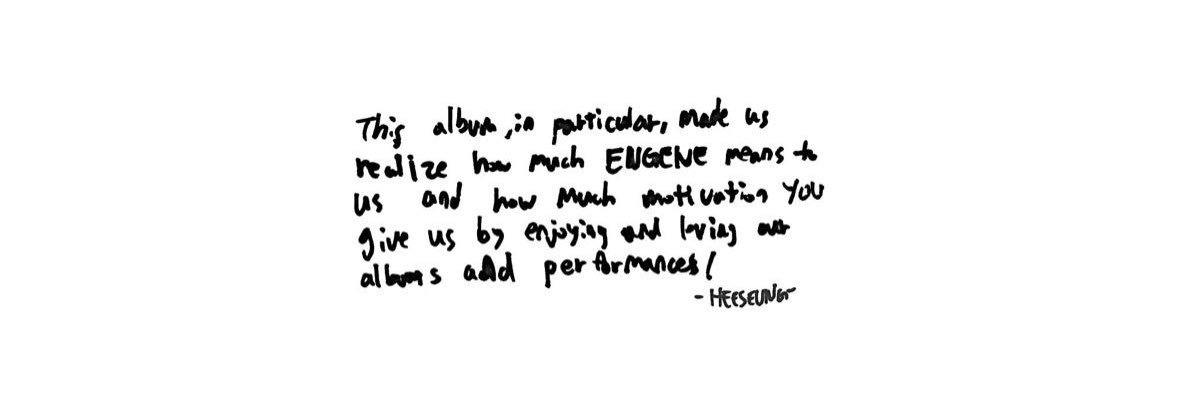 This album, in particular, made us
realize how much ENGENE means to
us and how much motivation you
give us by enjoying and loving our
albums and performances!
- HEESEUNG-